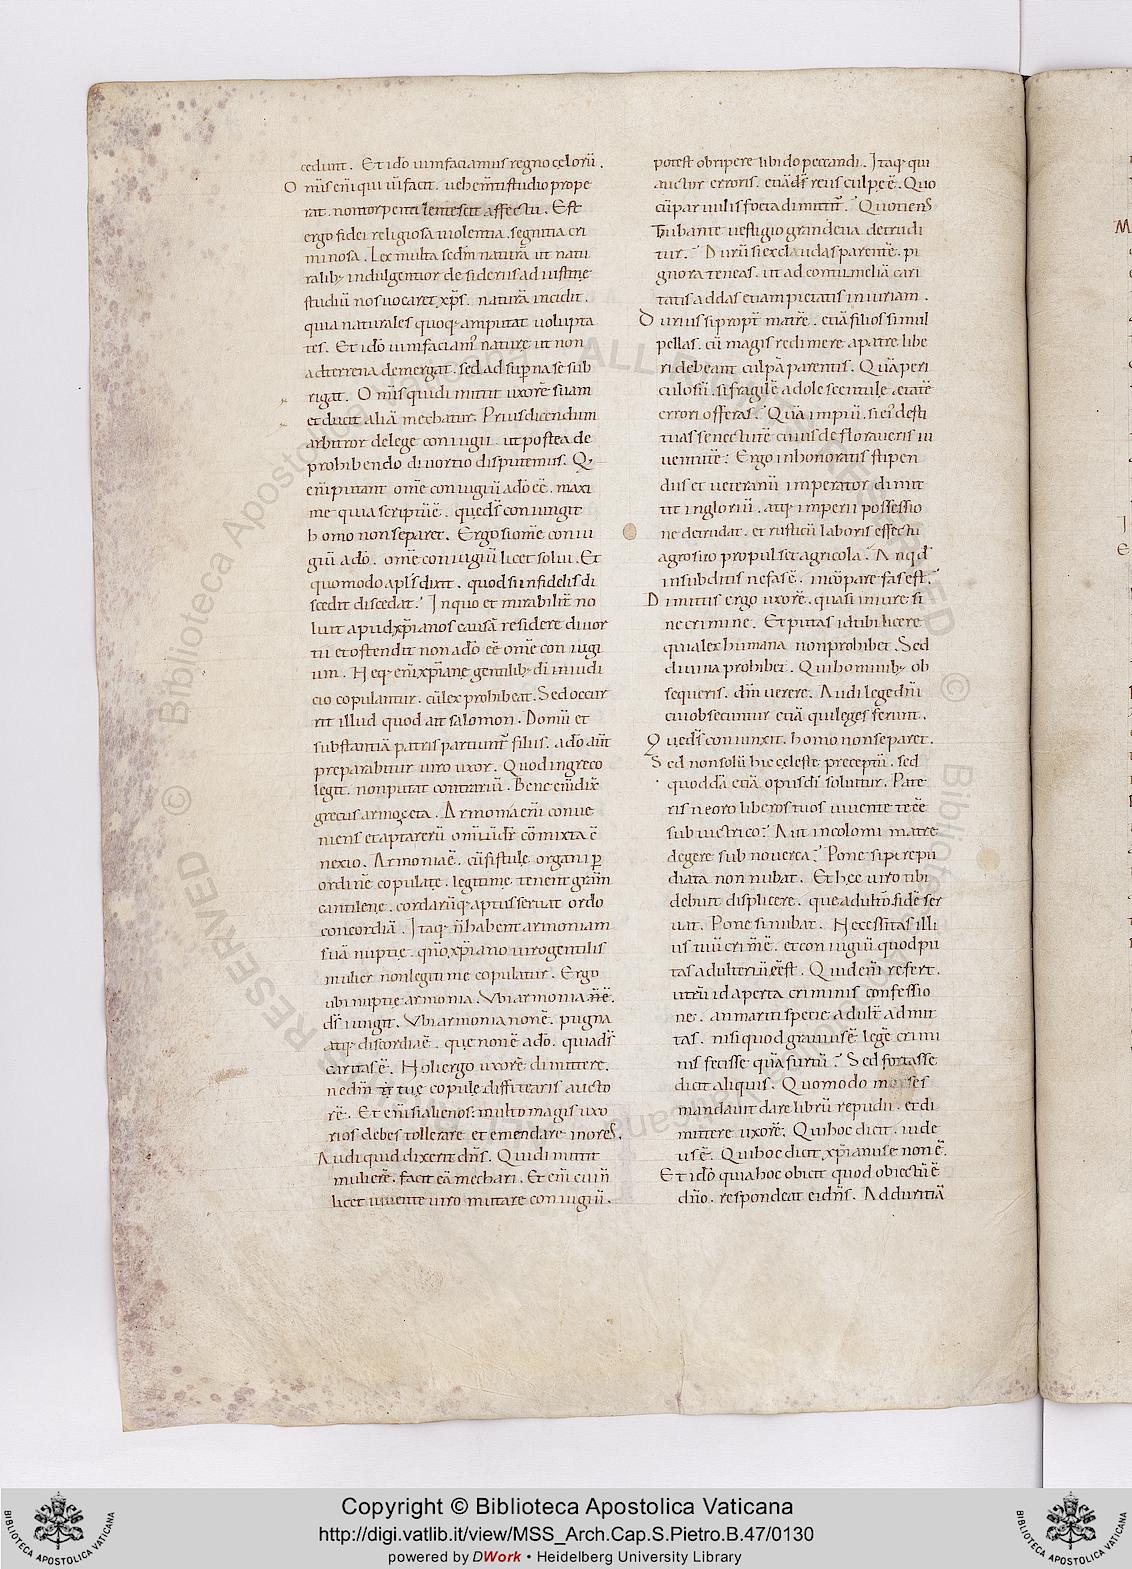 cedunt. Et idō uim faciamus regno cęlorū.
Omīs em̄ qui uī facit. uehem̄ti studio prope
rat. non torpenti lentescit affectu. Est
ergo fidei religiosa uiolentia. segnitia cri
minosa. Lex multa secdm̄ naturā ut natu
ralib; indulgentior desideriis ad iustitię
studiū nos uocaret. xp̄s. naturā incidit.
quia naturales quoq; amputat uolupta
tes. Et idō uim faciam' naturę ut non
ad terrena demergat. sed ad sup̄na se sub
rigat. Omīs qui dimittit uxorē suam
et ducit aliā mechatur. Prius dicendum
arbitror de lege coniugii. ut postea de
prohibendo diuortio disputemus. Q;
em̄ putant omē coniugiū a dō eē. maxi
me quia scriptū ē. que ds̄ coniungit
homo non separet. Ergo si omē coniu
giū a dō. omē coniugiū licet solui. Et
quomodo apl̄s dixit. quod si infidelis di
scedit discedat. In quo et mirabilit̄ no
luit apud xp̄ianos causā residere diuor
tii et ostendit non a dō eē omē coniugi
um. Neq; em̄ xp̄ianę gentilib; dī iudi
cio copulantur. cū lex prohibeat. Sed occur
rit illud quod ait salomon. Domū et
substantiā patris partiunt' filiis. a dō aūt
preparabitur uiro uxor. Quod in greco
legit. non putat contrariū. Bene em̄ dix̄
grecus armozeta. Armonia em̄ conue
niens et apta rerū omīū dr̄ cōmixta ē
nexio. Armonia ē. cū fistulę organi p
ordinē copulatę. legitimę tenent gram̄
cantilenę. cordarūq; aptus seruat ordo
concordiā. Itaq; n̄ habent armoniam
suā nuptię. qn̄o xp̄iano uiro gentilis
mulier non legitime copulatur. Ergo
ubi nuptię armonia. Vbi armonia n̄ ē.
ds̄ iungit. Vbi armonia non ē. pugna
atq; discordia ē. quę non ē a dō. quia ds̄
caritas ē. Noli ergo uxorē dimittere.
ne dm̄ tuę copulę diffitearis aucto
rē. Et em̄ si alienos. multo magis uxo
rios debes tollerare et emendare mores.
Audi quid dixerit dn̄s. Qui dimittit
mulierē. facit eā mechari. Et em̄ cui n̄
licet uiuente uiro mutare coniugiū.
potest obripere libido peccandi. Itaq; qui
auctor erroris. etiā dr̄ reus culpę ē. Quo
cū paruulis foeta dimittit̄. Quotiens
Titubante uestigio grandeua detrudi
tur. Durū si excludas parentē. pi
gnora teneas. ut ad contumeliā cari
tatis addas etiam pietatis iniuriam.
Durius si propt̄ matrē. etiā filios simul
pellas. cū magis redimere a patre libe
ri debeant culpā parentis. Quā peri
culosū. si fragilē adolescentulę ętatē
errori offeras. Quā impiū. si ei' desti
tuas senectutē cuius defloraueris iu
uentutē. Ergo inhonoratis stipen
diis et ueteranū imperator dimit
tit ingloriū. atq; imperii possessio
ne detrudat. et rusticū laboris effectū
agro suo propulset agricola. An qd̄
in subditis nefas ē. in cōpare fas est.
Dimittis ergo uxorē. quasi in iure si
ne crimine. Et putas id tibi licere
quia lex humana non prohibet. Sed
diuina prohibet. Qui hominib; ob
sequeris. dm̄ uerere. Audi legē dn̄i
cui obsecuntur etiā qui leges ferunt.
Que ds̄ coniunxit. homo non separet.
Sed non solū hic celeste preceptū. sed
quoddā etiā opus dī soluitur. Pate
ris n̄ oro liberos tuos uiuente te eē
sub uictrico. Aut incolomi matre
degere sub nouerca. Pone si pi repu
diata non nubat. Et hęc uiro tibi
debuit displicere. que adultō fidē ser
uat. Pone si nubat. Necessitas illi
us tuū crim̄ ē. et coniugiū quod pu
tas adulteriū ēst. Quid em̄ refert.
utrū id aperta criminis confessio
ne. an mariti specie adult̄ admit
tas. nisi quod grauius ē legē crimi
nis fecisse quā furtū. Sed fortasse
dicit aliquis. Quomodo moises
mandauit dare librū repudii. et di
mittere uxorē. Qui hoc dicit. iude
us ē. Qui hoc dicit. xp̄ianus non ē.
Et idō quia hoc obicit quod obiectū ē
dn̄o. respondeat ei dn̄s. Ad duritiā
Copyright © Biblioteca Apostolica Vaticana
http://digi.vatlib.it/view/MSS_Arch.Cap.S.Pietro.B.47/0130
powered by DWork • Heidelberg University Library